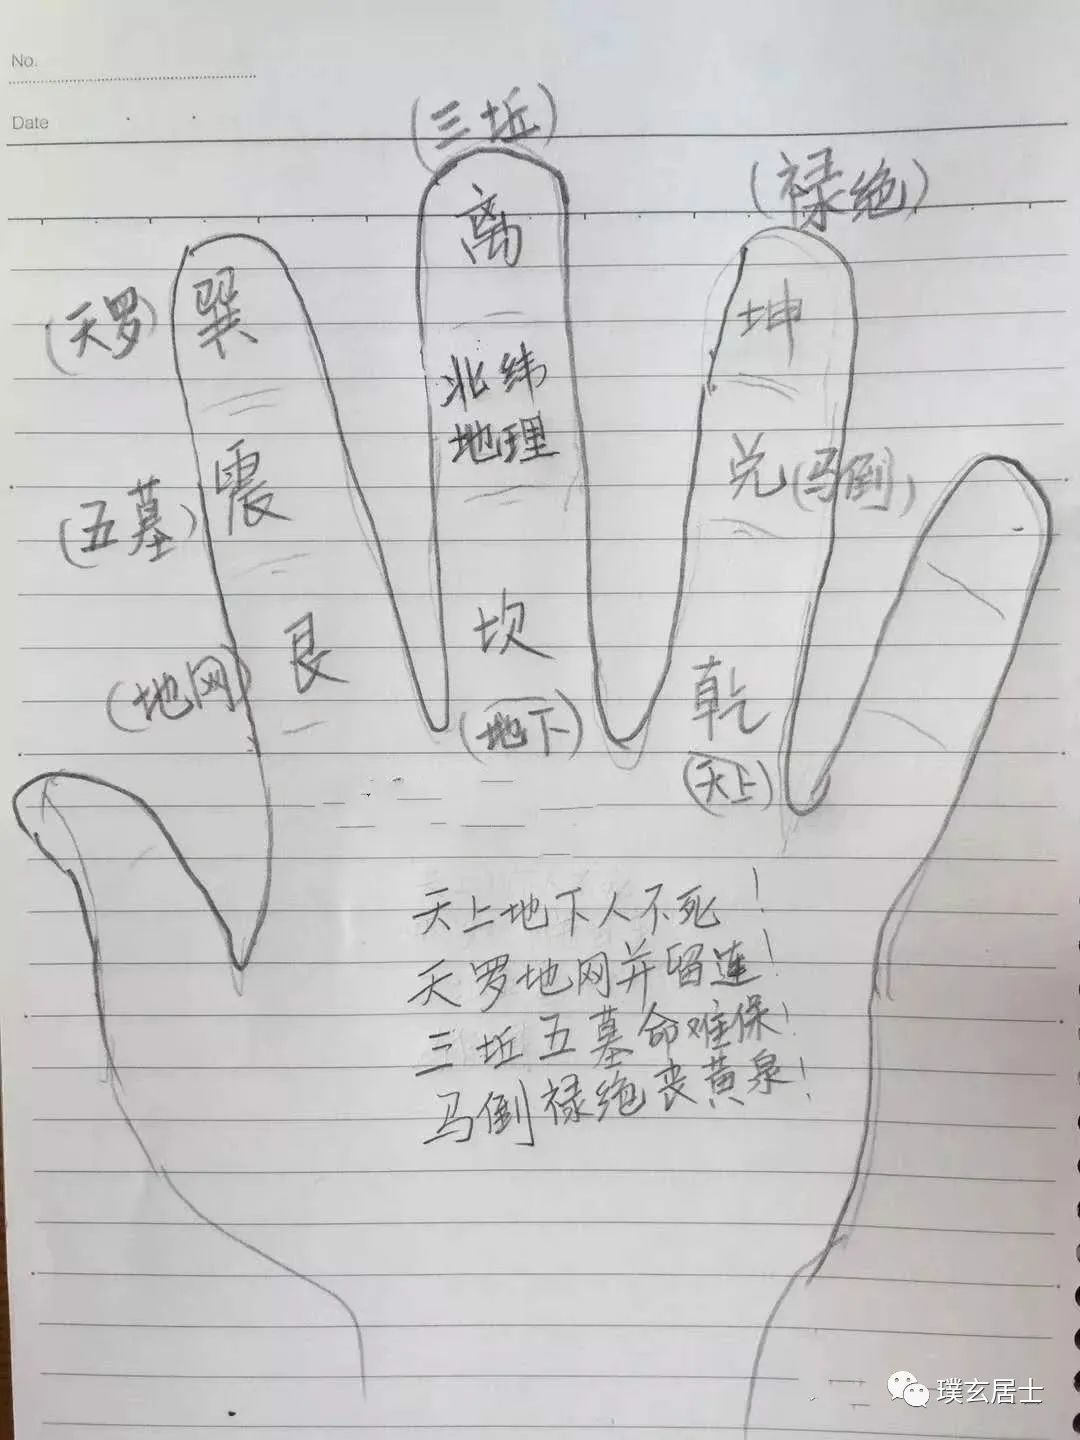 No.
Date
(三坵)
(禄绝)
离
(天罗)
巽
坤
北纬
地理
震
兑
(马倒)
(五墓)
坎
艮
(地网)
乾
(地下)
(天上)
天上地下人不死！
天罗地网并留连！
三坵五墓命难保！
马倒禄绝丧黄泉！
璞玄居士